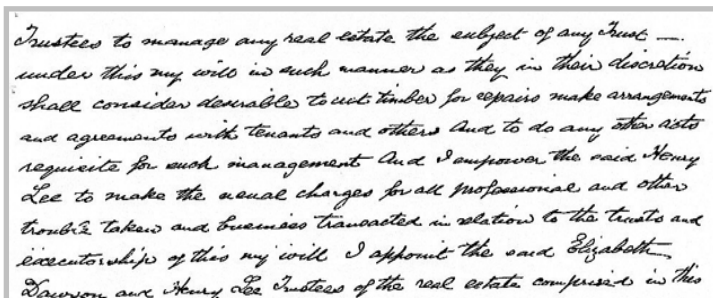 Trustees to manage any real estate the subject of any Trust —
under this my will in such manner as they in their discretion
shall consider desirable to cut timber for repairs make arrangements
and agreements with tenants and others And to do any other acts
requisite for such management And I empower the said Henry
Lee to make the usual charges for all professional and other
trouble taken and business transacted in relation to the trusts and
executorship of this my will I appoint the said Elizabeth
Dawson and Henry Lee Trustees of the real estate comprised in this